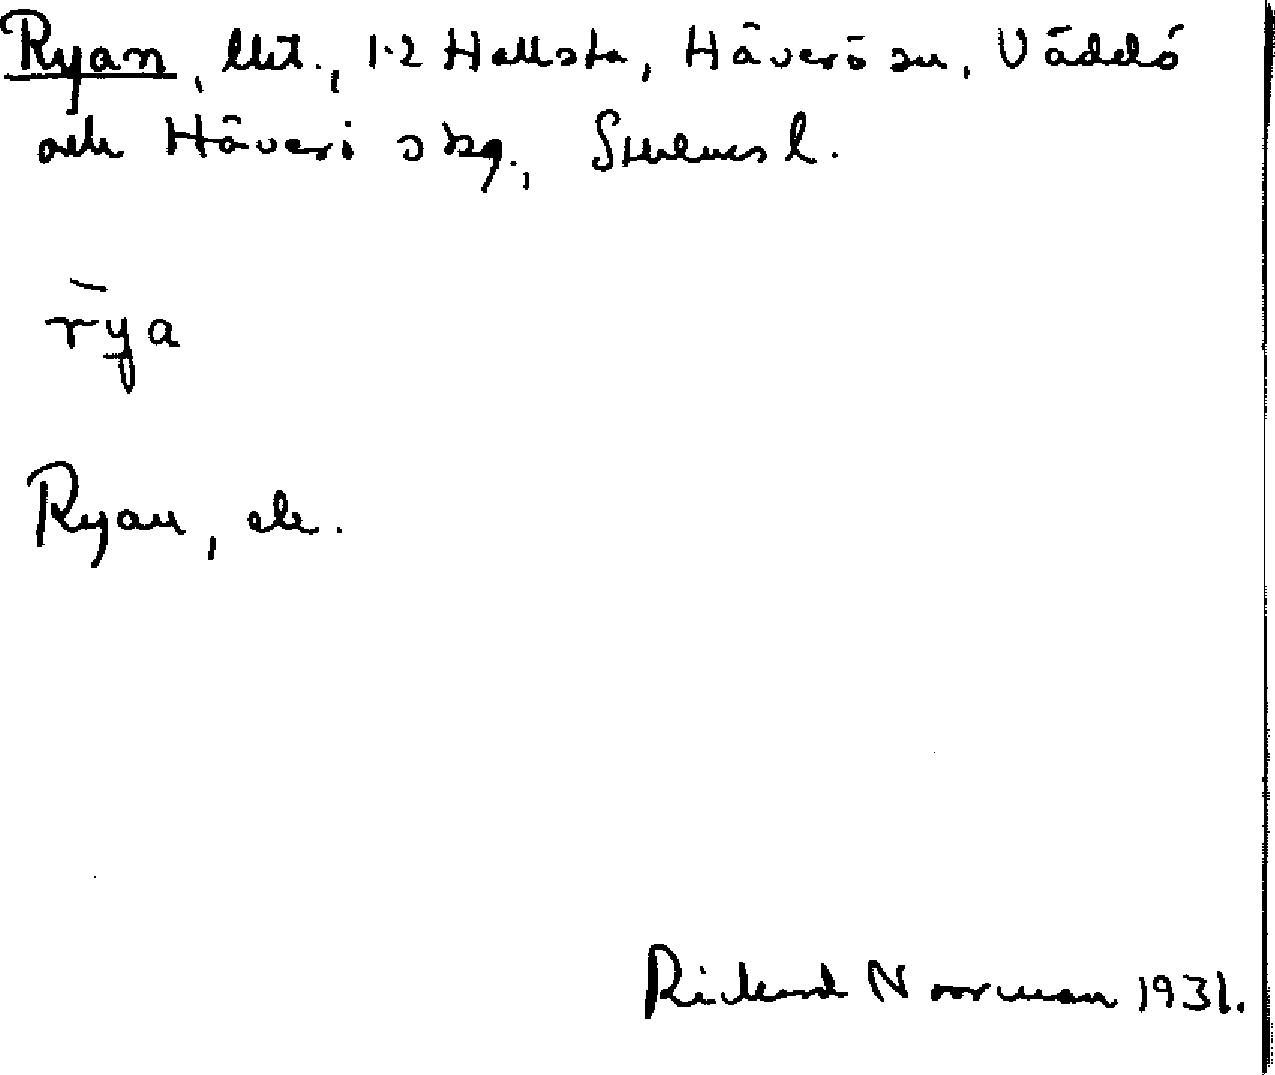 Ryan, lht., 1-2 Hallsta, Häverö sn, Väddö
och Häverö skg., Stockholms l.
rya
Ryan, ek.
Rickard Noorman 1931.